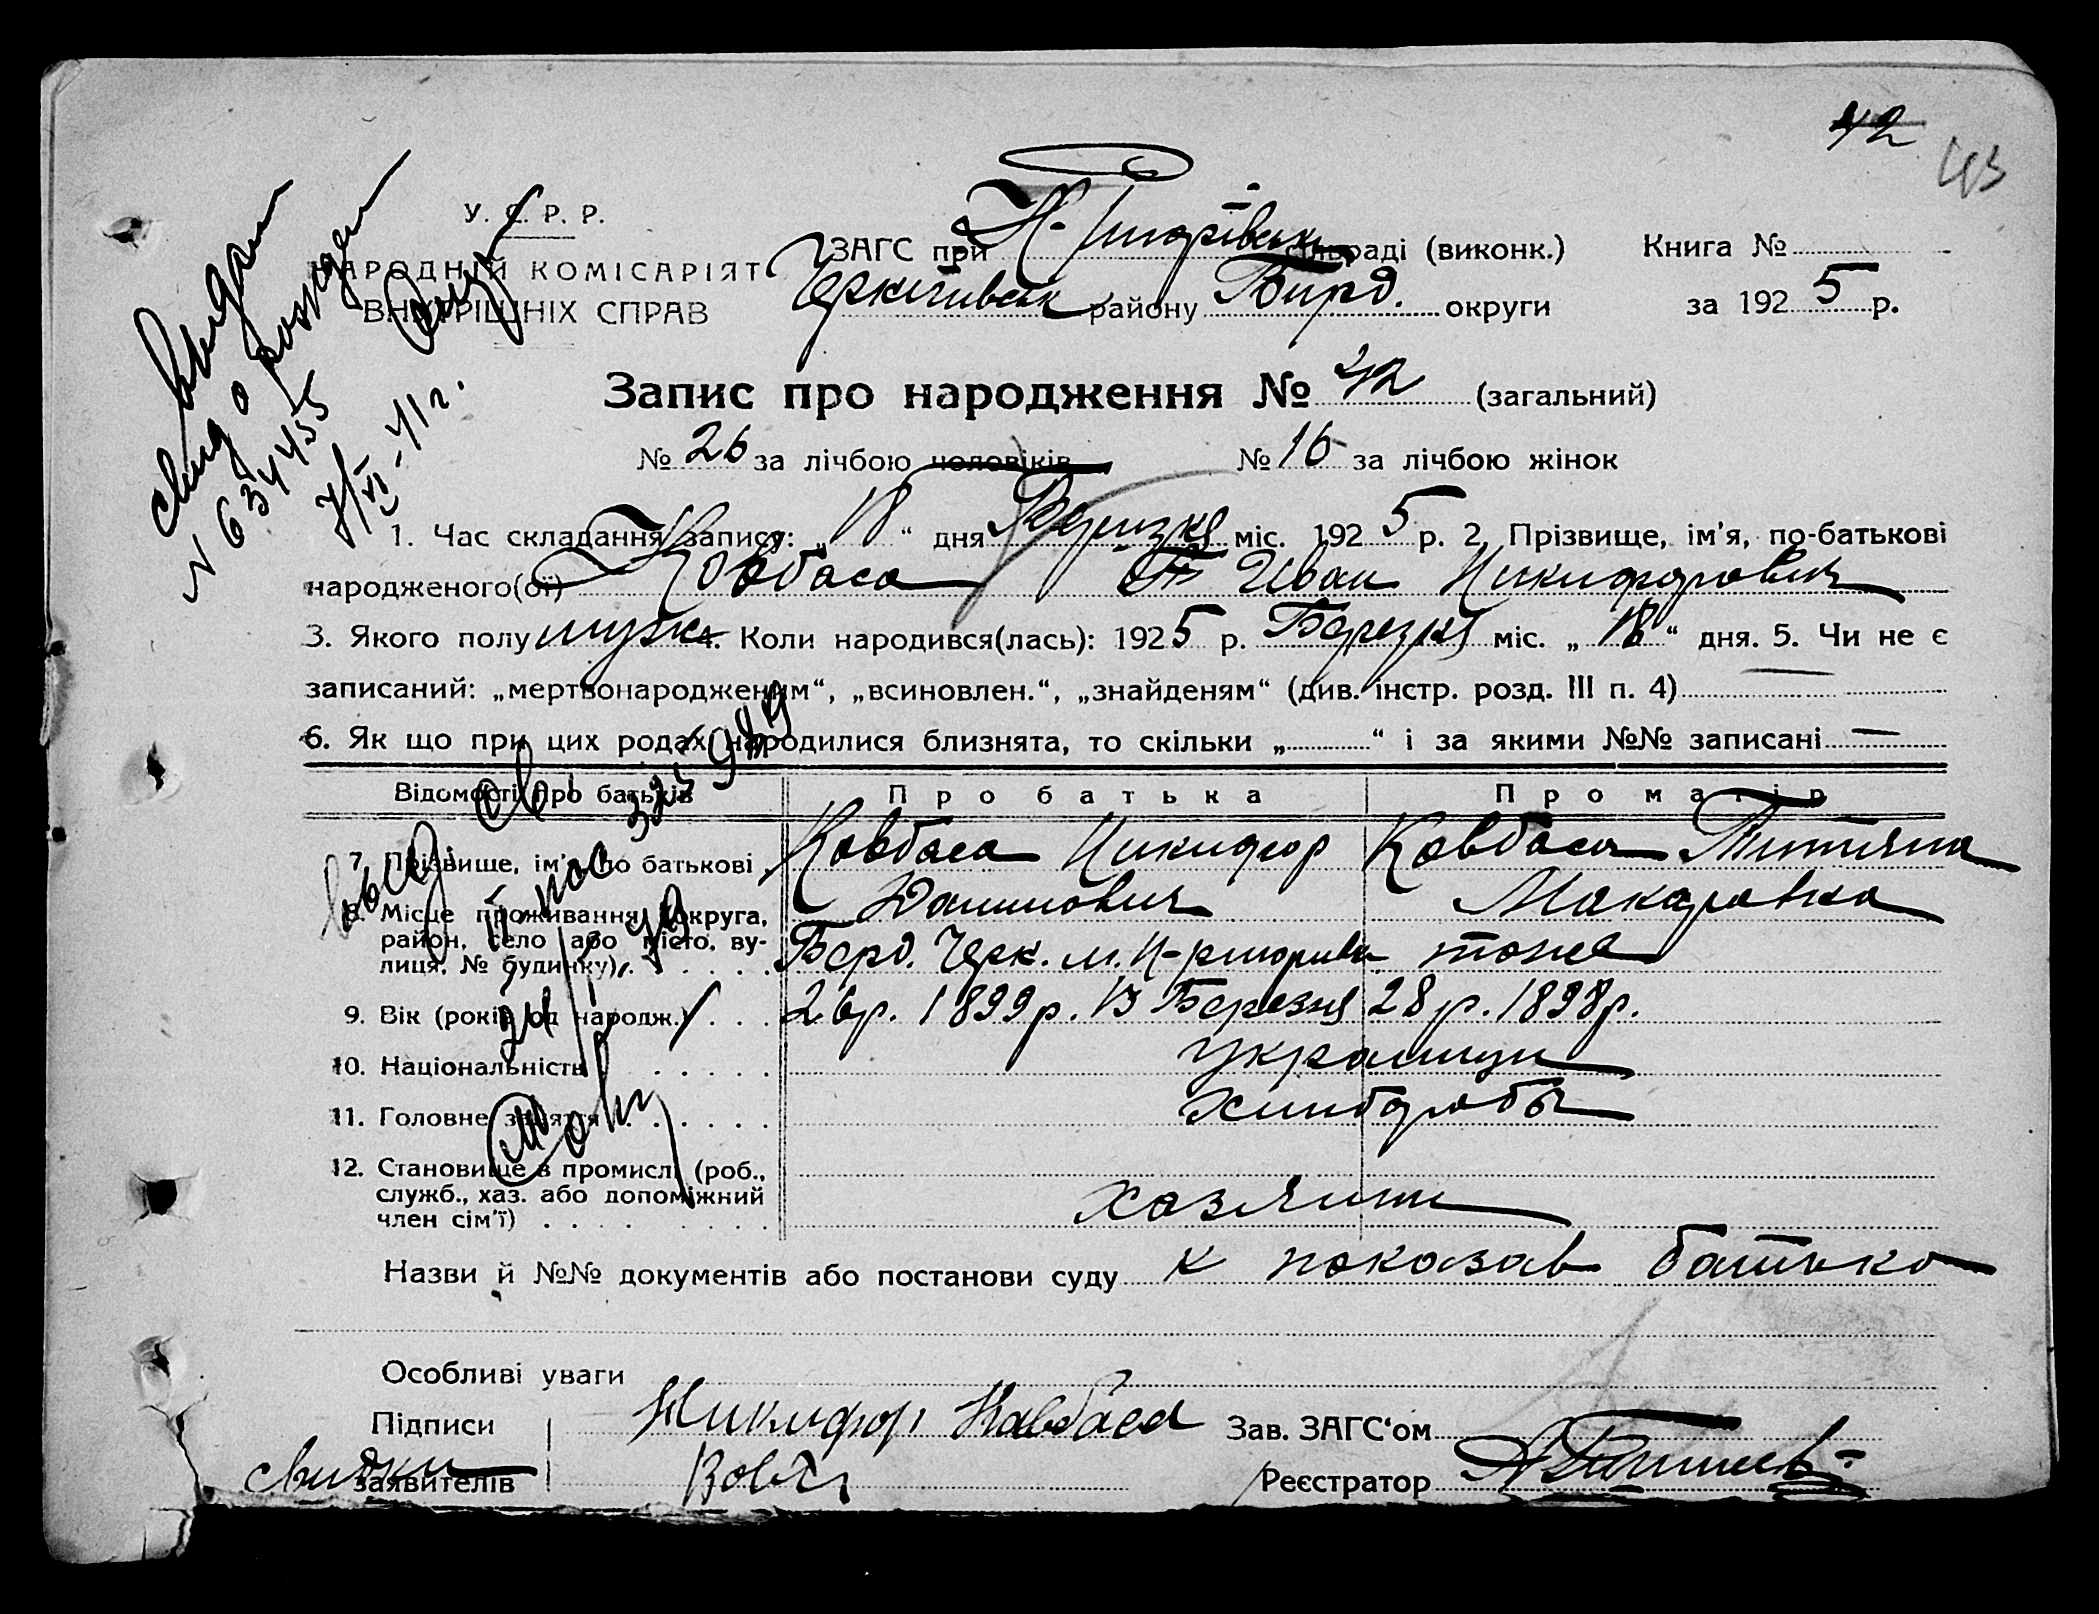 42
43
У. С. Р. Р.
НАРОДНІЙ КОМІСАРІЯТ
ВНУТРІШНІХ СПРАВ
ЗАГС при Н- сільраді (виконк.) Книга №
району Бирд. округи за 1925 р.
Запис про народження № 42 (загальний)
№ 26 за лічбою чоловіків № 16 за лічбою жінок
1. Час складання запису: „18“ дня Березня міс. 1925 р. 2. Прізвище, ім'я, по-батькові
народженого(ої) Ковбаса Иван Никифорович
3. Якого полу муж 4. Коли народився(лась): 1925 р. Березня міс. „18“ дня. 5. Чи не є
записаний: „мертвонародженим“, „всиновлен.“, „знайденям“ (див. інстр. розд. III п. 4) —
6. Як що при цих родах народилися близнята, то скільки „ “ і за якими №№ записані —
Відомості про батьків Про батька Про матір
7. Прізвище, ім'я, по батькові Ковбаса Никифор Ковбаса Титяна
Данилович Макаровка
8. Місце проживання (округа,
район, село або місто, ву-
лиця, № будинку) Берд. Черк. тоже
9. Вік (років од народж.) 26р. 1899р. 13 Березня 28р. 1898р.
10. Національність украинци
11. Головне заняття хлибороби
12. Становище в промислі (роб.,
служб., хаз. або допоміжний
член сім'ї) хазяини
Назви й №№ документів або постанови суду показав батько
Особливі уваги
Підписи Никифор Ковбаса Зав. ЗАГС'ом
Свидки
заявителів Реєстратор
Выдан
свид о рожден
N 634455
7/VI-41 г.